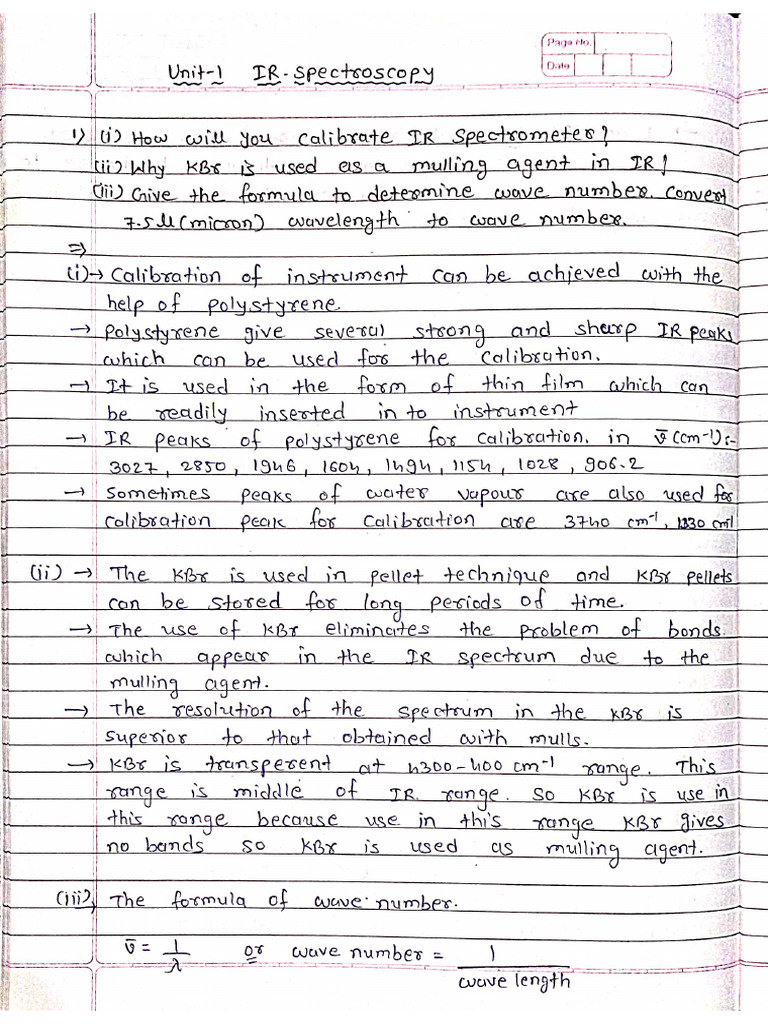 Page No.
Date
Unit-1 IR-Spectroscopy
1) (i) How will you calibrate IR spectrometer?
(ii) Why KBr is used as a mulling agent in IR?
(iii) Give the formula to determine wave number. Convert
7.5 μ (micron) wavelength to wave number.
⇒
(i) → Calibration of instrument can be achieved with the
help of polystyrene
→ Polystyrene give several strong and sharp IR peaks
which can be used for the calibration.
→ It is used in the form of thin film which can
be readily inserted in to instrument
→ IR peaks of polystyrene for calibration. in ν̅ (cm-1):-
3027, 2850, 1946, 1604, 1494, 1154, 1028, 906.2
→ Sometimes peaks of water vapour are also used for
calibration peak for calibration are 3740 cm-1, 1330 cm-1
(ii) → The KBr is used in pellet technique and KBr pellets
can be stored for long periods of time.
→ The use of KBr eliminates the problem of bonds
which appear in the IR spectrum due to the
mulling agent.
→ The resolution of the spectrum in the KBr is
superior to that obtained with mulls.
→ KBr is transperent at 4300-400 cm-1 range. This
range is middle of IR range. So KBr is use in
this range because use in this range KBr gives
no bands so KBr is used as mulling agent.
(iii) The formula of wave number.
ν̅ = 1/λ or wave number = 1/wave length